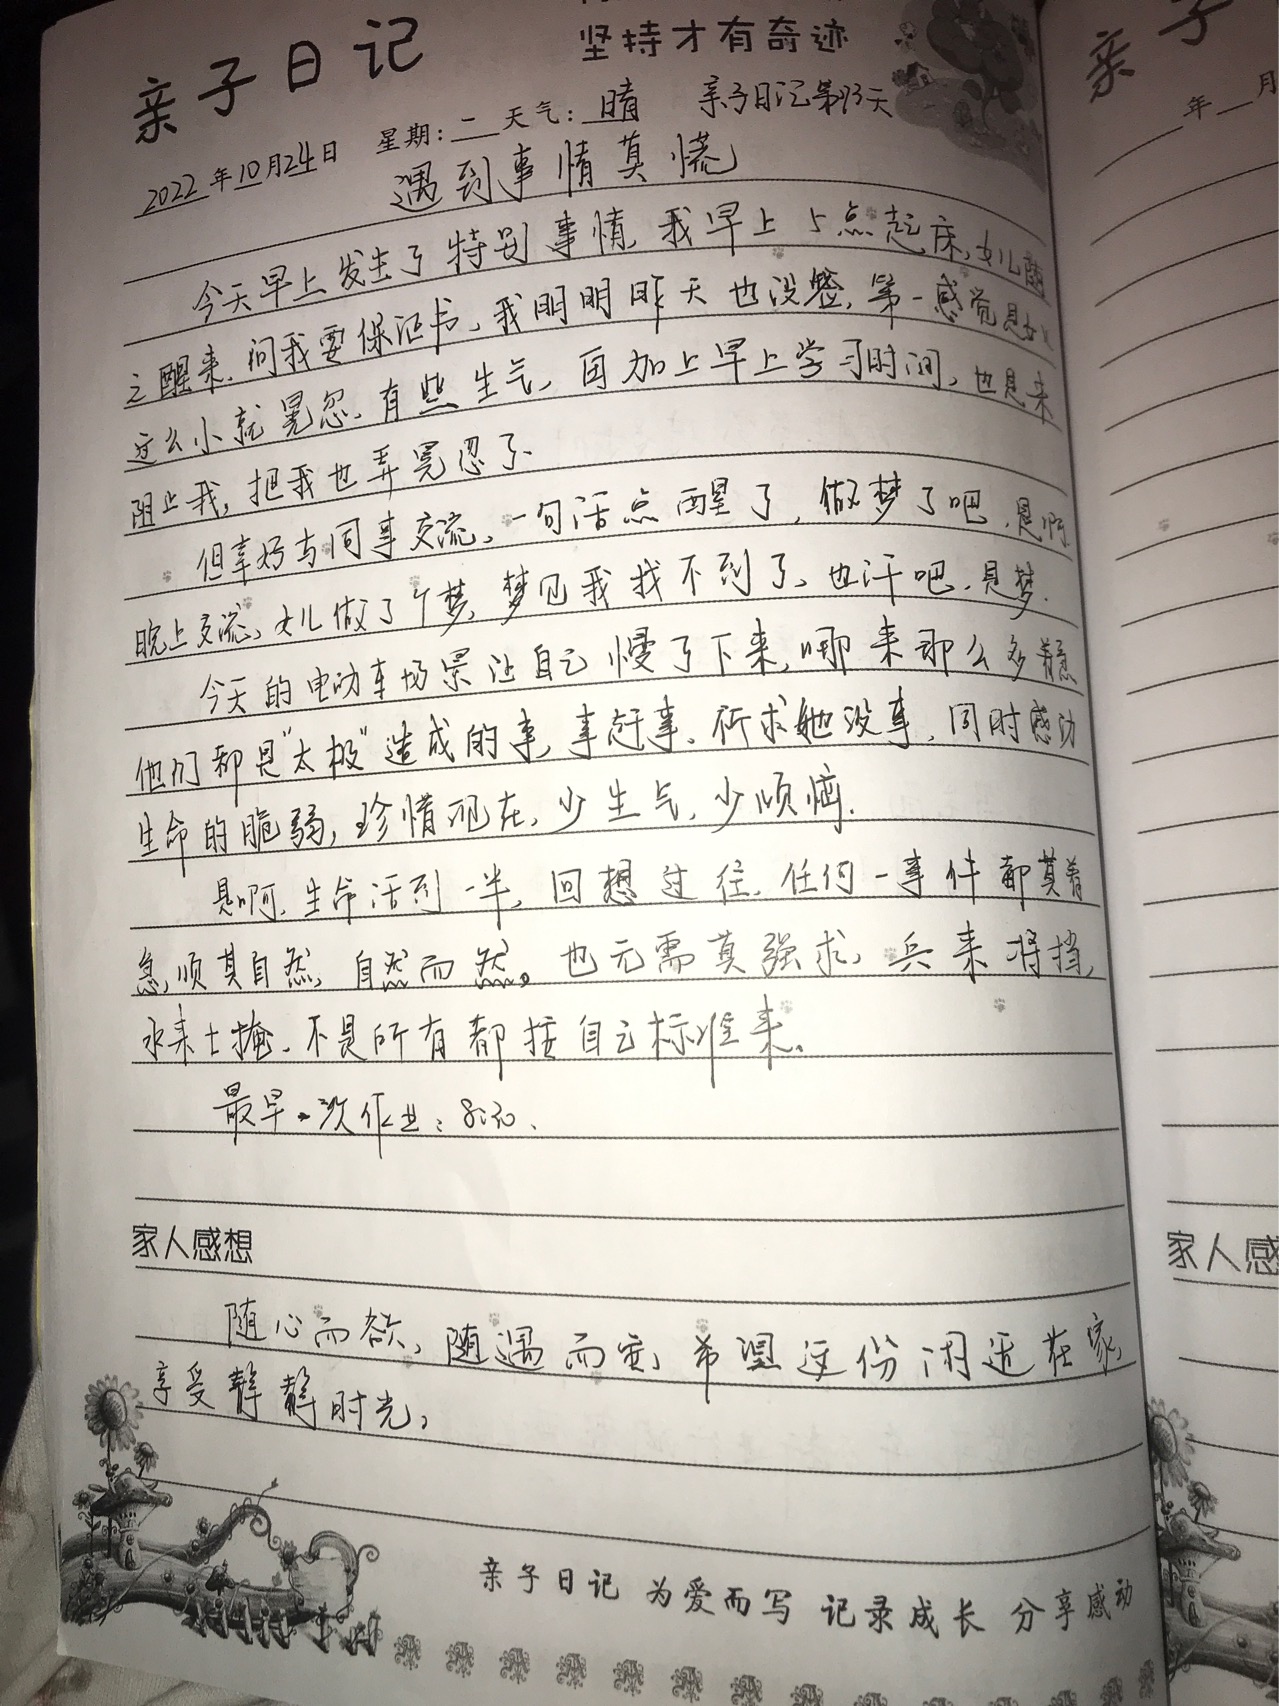 坚持才有奇迹
亲子日记
2022年10月24日 星期:二 天气:晴 亲子日记第93天
遇到事情莫慌
今天早上发生了特别事情,我早上5点起床,女儿随
之醒来,问我要保证书,我明明昨天也没签,第一感觉是女儿
这么小就晃忽,有些生气,再加上早上学习时间,也是来
阻止我,把我也弄晃忽了.
但幸好与同事交流,一句话点醒了,做梦了吧,是啊.
晚上交流,女儿做了个梦,梦见我找不到了,也许吧,是梦.
今天的电动车场景让自己慢了下来,哪来那么多着急
他们都是"太极"造成的事,事赶事,祈求她没事,同时感动
生命的脆弱,珍惜现在,少生气,少烦恼.
是啊,生命活到一半,回想过往,任何一事件都莫着
急,顺其自然,自然而然。也无需莫强求,兵来将挡,
水来土掩,不是所有都按自己标准来。
最早一次作业:8:30.
家人感想
随心而欲,随遇而安,希望这份闲适在家,
享受静静时光,
亲子日记 为爱而写 记录成长 分享感动
亲子
年 月
家人感